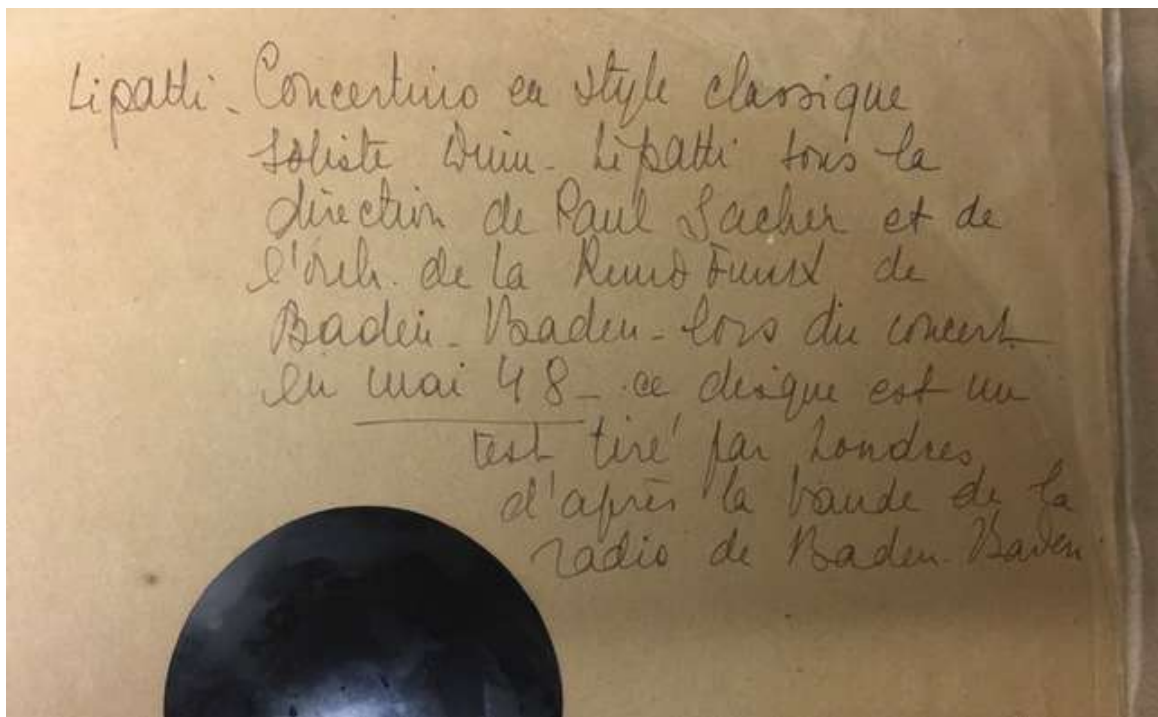 Lipatti - Concertino en style classique
Soliste Dinu - Lipatti sous la
direction de Paul Sacher et de
l'orch. de la Funk de
Baden - Baden - lors du concert
en mai 48 - ce disque est un
test tiré par Londres
d'après la bande de la
radio de Baden - Baden